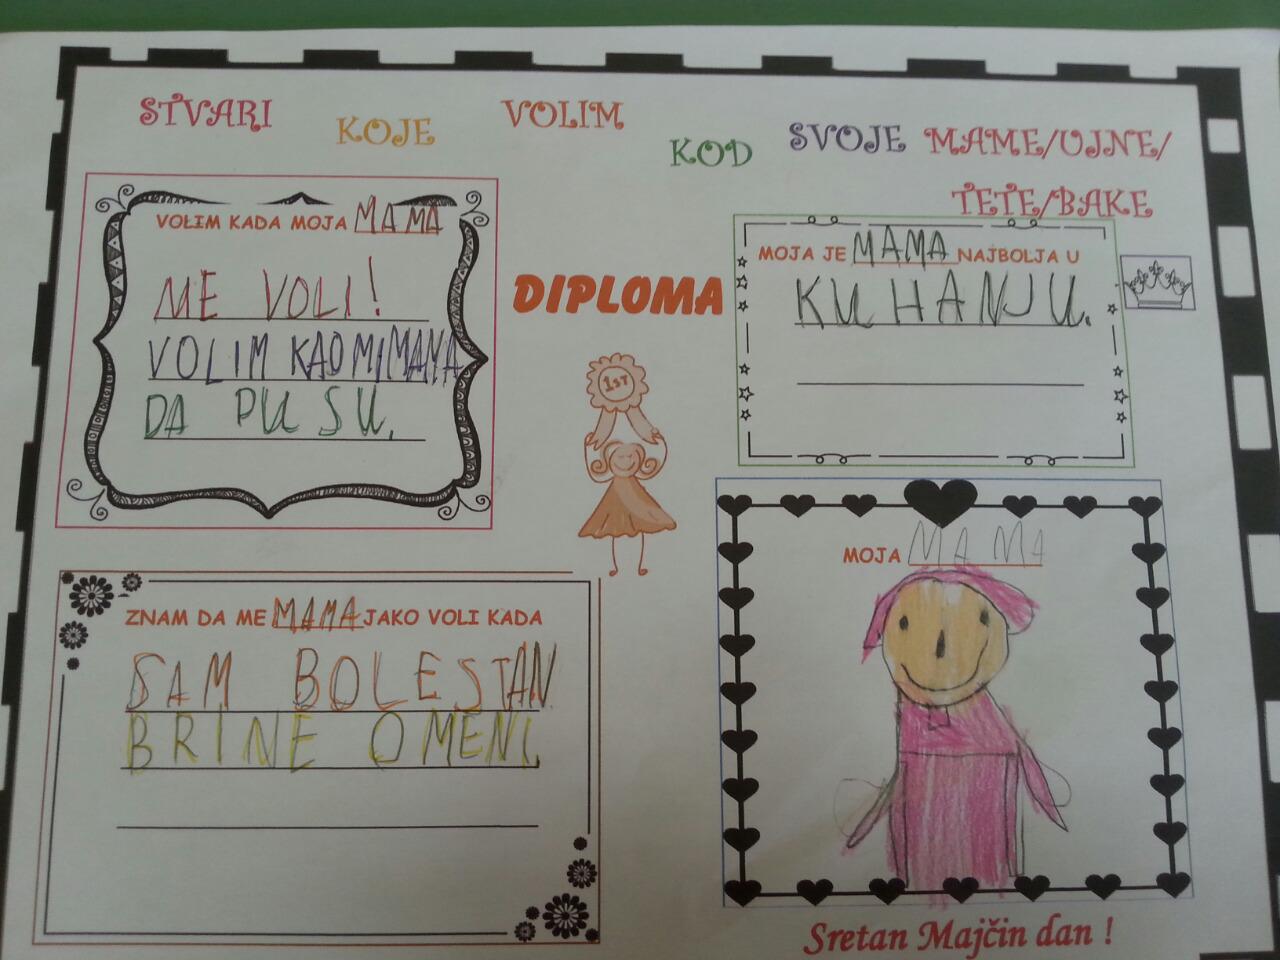 STVARI KOJE VOLIM KOD SVOJE MAME/UJNE/
TETE/BAKE
VOLIM KADA MOJA MAMA
ME VOLI!
VOLIM KAO MI MAMA
DA PUSU.
DIPLOMA
1ST
MOJA JE MAMA NAJBOLJA U
KUHANJU.
ZNAM DA ME MAMA JAKO VOLI KADA
SAM BOLESTAN
BRINE O MENI.
MOJA MAMA
Sretan Majčin dan !